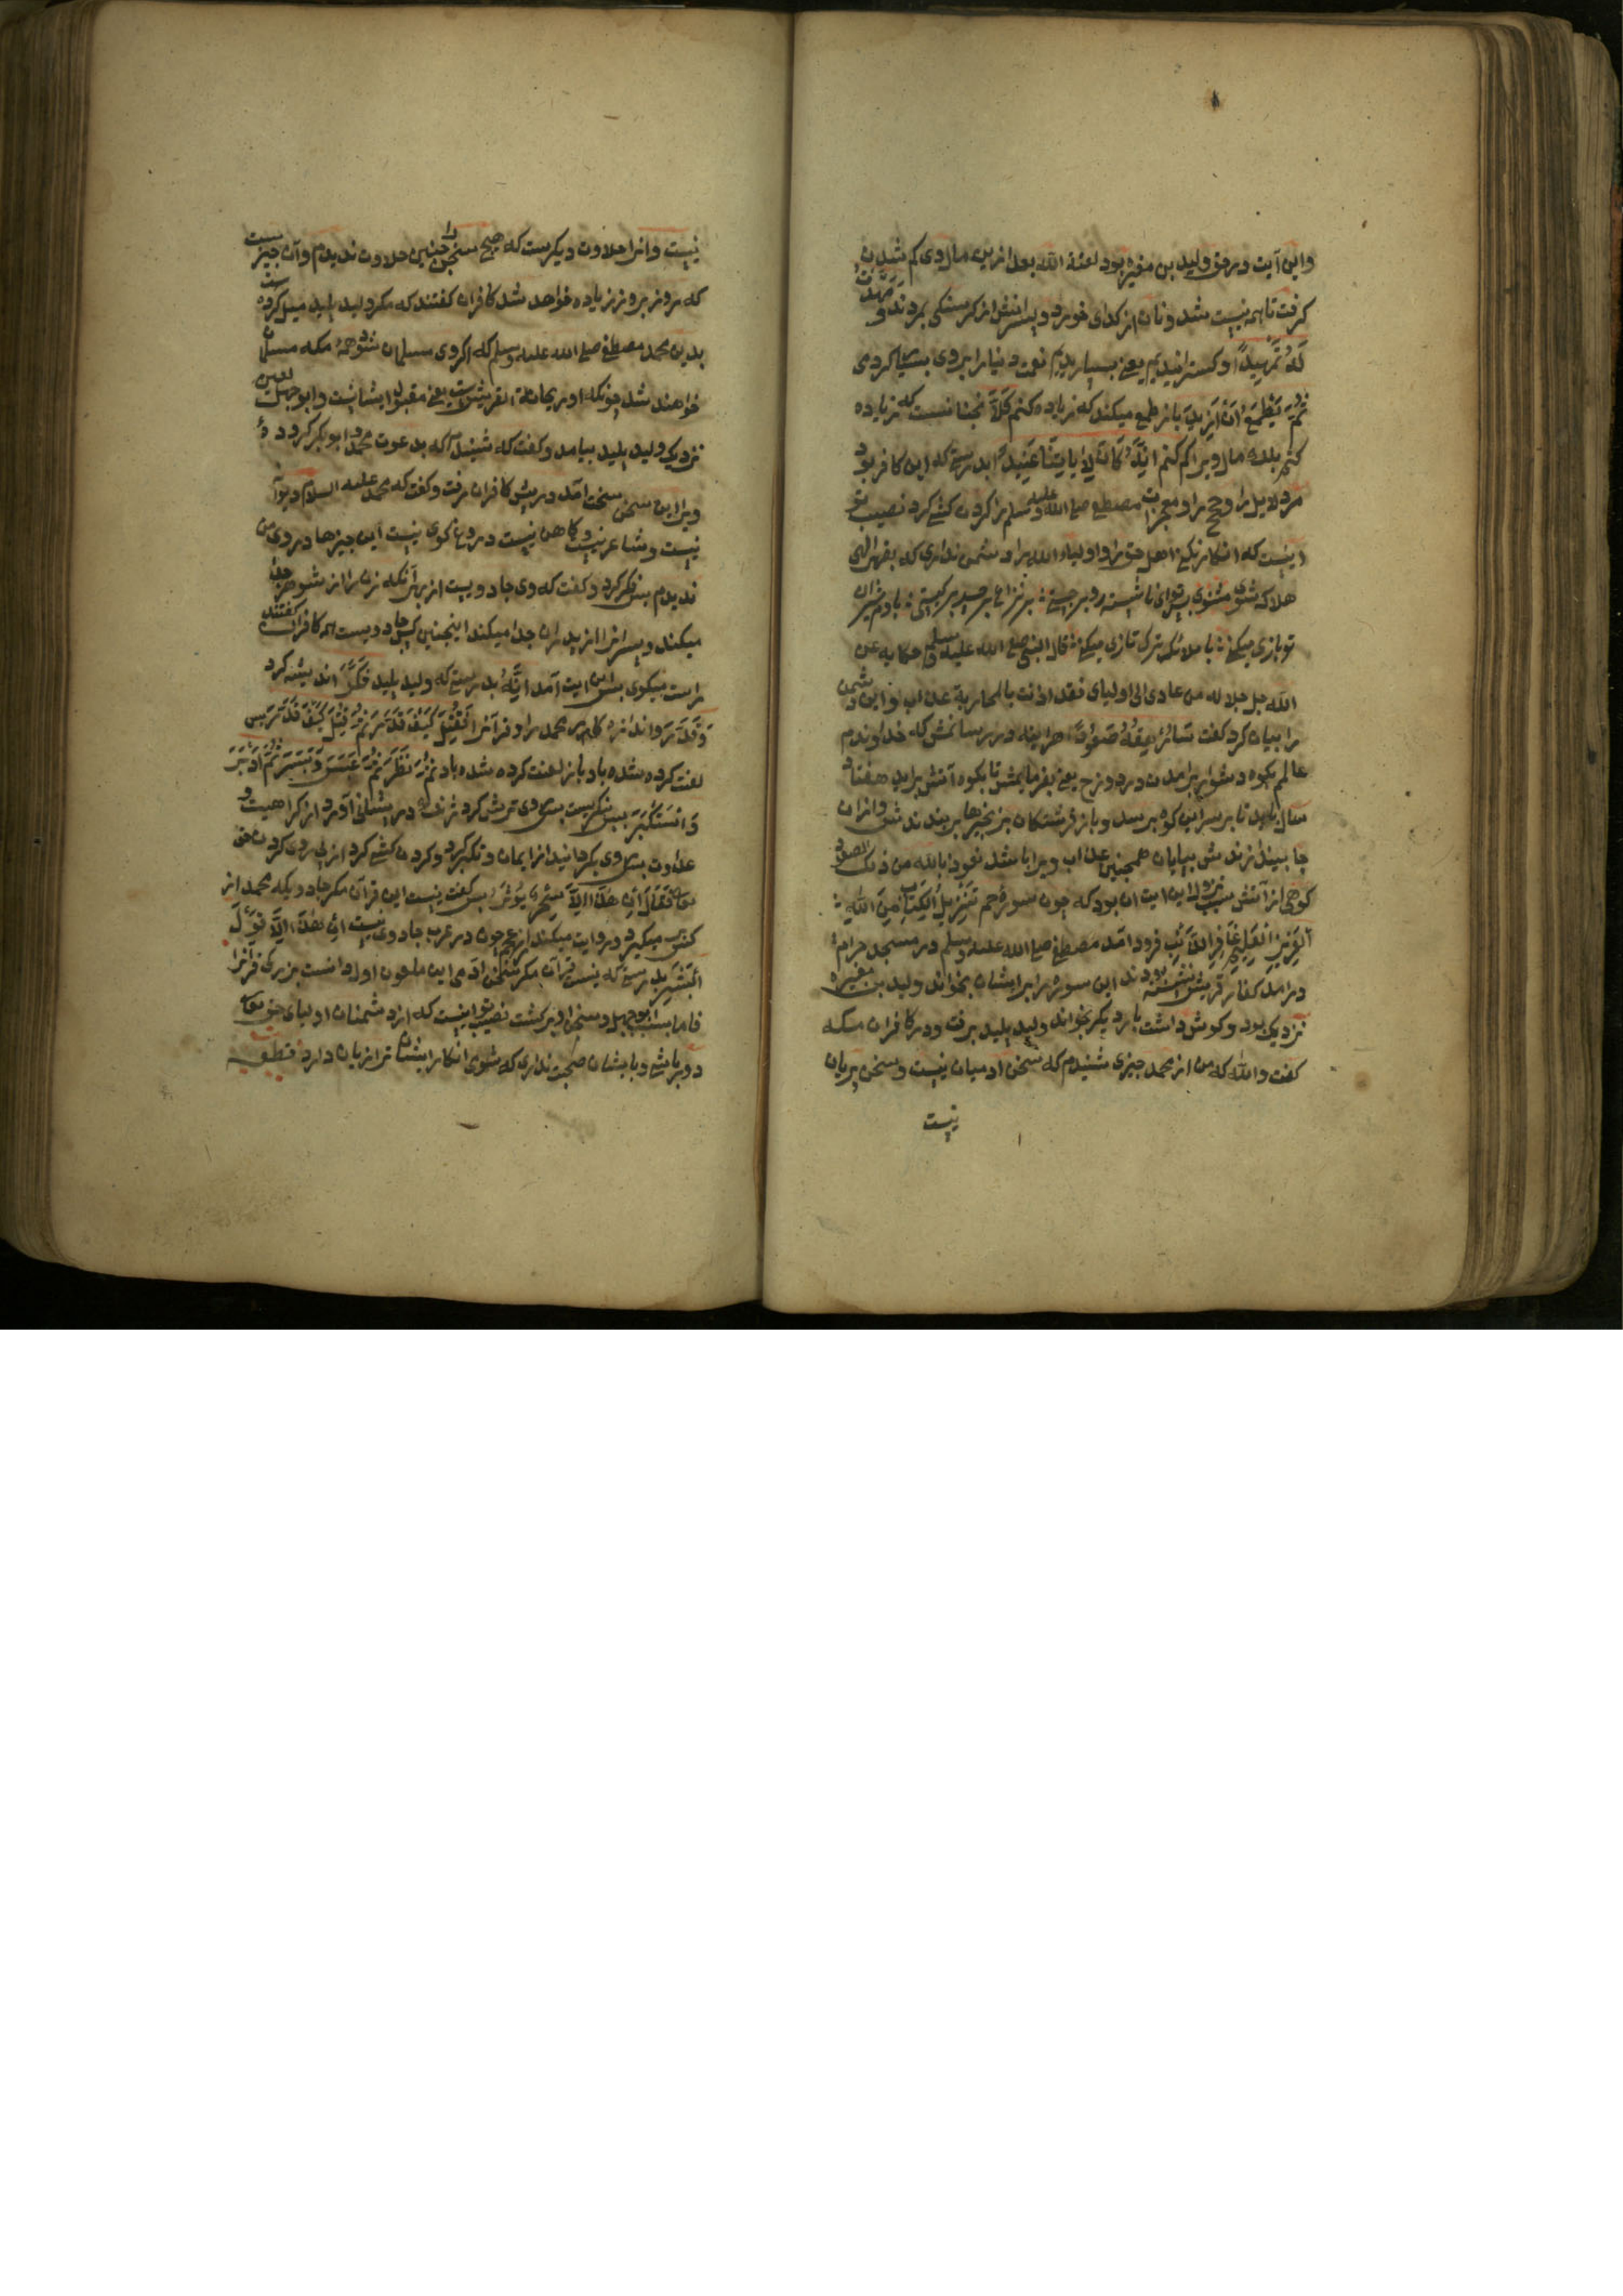 واین آیت در حق ولید بن مغیره بود لعنة الله بعد ازین مال وی کم شدن
کرفت تا همه نیست شد و نان از کدای خورد و پسرانش از کرسنکی بمردند و مهدت
له تمهیدا و کسترانیدیم یعنی بسیار دیم نعمت دنیا را بروی بسیا کردی
ثم یطمع ان ازید باز طمع میکند که زیاده کنم کلا نجنانست که زیاده
کنم بلکه مال ویرا کم کنم انه کان لایاتنا عنیدا بدرستی که این کافر بود
مر دلایل را و حج را و معجزات مصطفی صلی الله علیه وسلم را کردن کشی کرد نصیب تو
اینست که انکار نکنی اهل حق را و اولیاء الله را دشمن نداری که بقهر الهی
هلاک شوی مثنوی
تو بازی میکنی با ملائک ترک تازی میکنی قال النبی صلی الله علیه وسلم حکایه عن
الله جل جلاله من عادی لی اولیای فقد اذنت بالمحاربة عذاب و این دشمن
را بیان کرد کفت سأرهقه صعودا هراینه در رسانمش که خداوندم
عالم بکوه دشوار برآمدن در دوزخ یعنی بفرمایمش تا بکوه آتش براید هفتاد
سال باید تا بر سر این کوه برسد و باز فرشتکان بزنجیرها ببندندش و ازان
جا بیندازندش بپایان همجنین عذاب ویرا باشد نعوذ بالله من ذلک الصعود
کوهی از آتش سبب نزول این ایت ان بود که چون سوره حم تنزیل الکتاب من الله
العزیز العلیم غافر الذنب فرود آمد مصطفی صلی الله علیه وسلم در مسجد حرام
درامد کفار قریش نشسته بودند این سوره را برایشان بخواند ولید بن مغیره
نزدیک بود و کوش داشت بار دیکر بخواند ولید پلید برفت و در کافران مکه
کفت والله که من از محمد جیزی شنیدم که سخن ادمیان نیست و سخن پریان
نیست
نیست و انرا حلاوت دیکرست که هیچ سخن را جنین حلاوت ندیدم وآن جیزیست
که روز بروز زیاده خواهد شد کافران کفتند که مکر ولید پلید میل کرده است
بدین محمد مصطفی صلی الله علیه وسلم که اکر وی مسلمان شود همه مکه مسلمان
خواهند شد چونکه او ریحانة القریش است یعنی مقبول ایشانست وابو جهل لعین
نزدیک ولید پلید بیامد و کفت که شنیدم که بدعوت محمد و ابوبکر کرد
ویرا این سخن سخت آمد در پیش کافران رفت و کفت که محمد علیه السلام دیوانه
نیست و شاعر نیست و کاهن نیست دروغ کوی نیست این جیزها در وی من
ندیدم پس فکر کرد و کفت که وی جادویست از بهر آنکه زن را از شوهر جدا
میکند و پسر انرا از پدران جدا میکند اینجنین کس جادویست همه کافران کفتند
راست میکوی پس این ایت آمد انه بدرستی که ولید پلید فکر اندیشه کرد
وقدر و اندازه کار محمد را و قرآنرا فقتل کیف قدر ثم قتل کیف قدر پس
لعنت کرده شده باد باز لعنت کرده شده باد ثم نظر ثم عبس وبسر ثم ادبر
واستکبر پس نکریست پس روی ترش کرد در پیشانی آورد از کراهیت و
عداوت پس روی بکردانید از ایمان و تکبر کرد و کردن کشی کرد از پی روی کردن حق
تعالی فقال ان هذا الا سحر یؤثر پس کفت نیست این قرآن مکر جادوی که محمد از
کسی میکیرد و روایت میکند از عجم چون در عرب جادوی نیست ان هذا الا قول
البشر بدرستی که نیست قرآن مکر سخن آدمی این ملعون اول دانست بزرکی قرآنرا
فاما بسبب ابوجهل و سخن او برکشت نصیب تو اینست که از دشمنان اولیای حق تعالی
دور باشی و با ایشان صحبت نداری که شومی انکار ایشان ترا زیان دارد قطعه